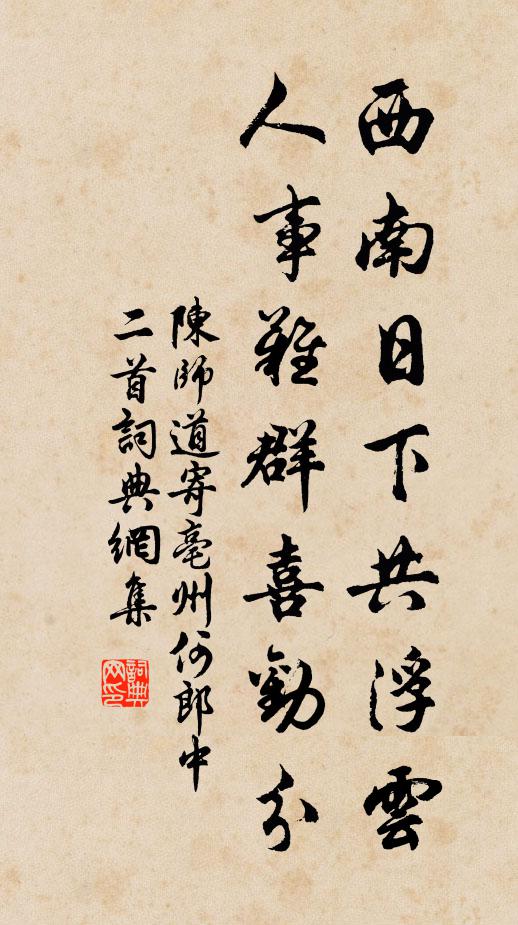 西南日下共浮雲
人事難群喜勸分
陳師道寄亳州何郎中
二首詞典網集
詞典網印